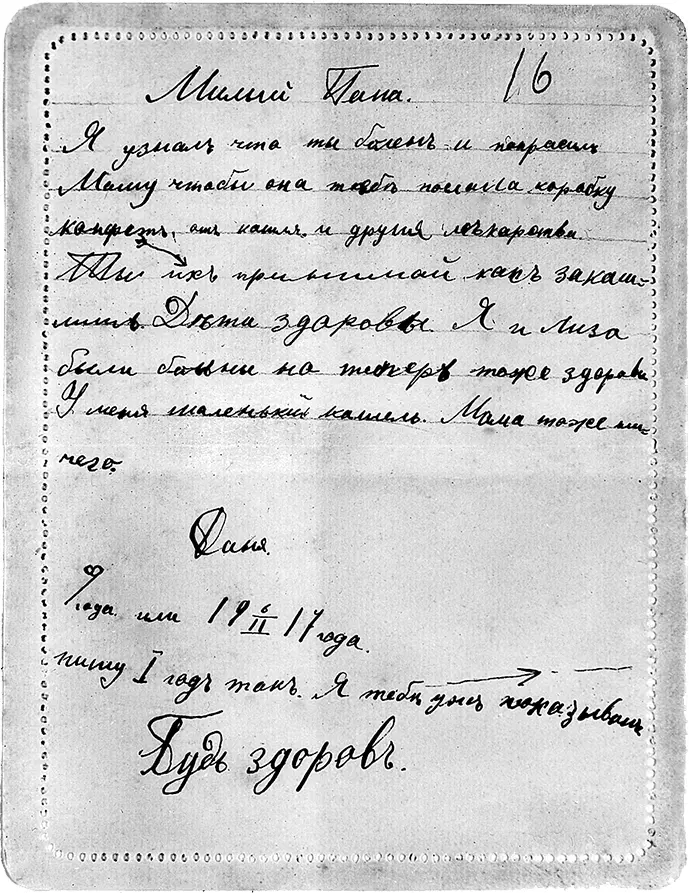 Милый Папа. 16
Я узналъ что ты боленъ и попрасилъ
Машу чтобы она тебѣ послала коробку
конфетъ, отъ кашля и другия лѣкарства.
Ты ихъ принимай какъ закаш-
лишь. Дѣти здаровы Я и Лиза
были больны но теперь тоже здоровы
У меня маленький кашель. Мама тоже ни-
чего.
Даня.
года или 19 6/II 17 года.
пишу I годъ такъ. Я тебѣ ужъ показывалъ
Будь здоровъ.